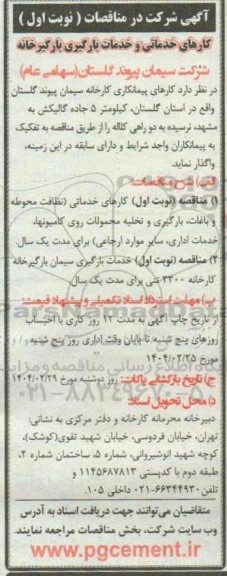 آگهی شرکت در مناقصات ( نوبت اول )
کارهای خدماتی و خدمات بارگیری بارگیرخانه
شرکت سیمان پیوند گلستان(سهامی عام)
در نظر دارد کارهای پیمانکاری کارخانه سیمان پیوند گلستان
واقع در استان گلستان، کیلومتر ۵ جاده گالیکش به
مشهد، نرسیده به دو راهی کلاله را از طریق مناقصه به تفکیک
به پیمانکاران واجد شرایط و دارای سابقه در این زمینه،
واگذار نماید.
الف) شرح مناقصات:
۱) مناقصه (نوبت اول) کارهای خدماتی (نظافت محوطه
و باغات، بارگیری و تخلیه محمولات روی کامیونها،
خدمات اداری، سایر موارد ارجاعی) برای مدت یک سال.
۲) مناقصه (نوبت اول) خدمات بارگیری سیمان بارگیرخانه
کارخانه ۳۳۰۰ تنی برای مدت یک سال.
ب) مهلت استرداد اسناد تکمیلی و پیشنهاد قیمت:
از تاریخ چاپ آگهی به مدت ۱۲ روز کاری با احتساب
روزهای پنج شنبه، تا پایان وقت اداری روز پنج شنبه
مورخ ۱۴۰۴/۰۲/۲۵
ج) تاریخ بازگشائی پاکات: روز دوشنبه مورخ ۱۴۰۴/۰۲/۲۹
د) محل تحویل اسناد:
دبیرخانه محرمانه کارخانه و دفتر مرکزی به نشانی:
تهران، خیابان فردوسی، خیابان شهید تقوی(کوشک)،
کوچه شهید انوشیروانی، شماره ۵، ساختمان شماره ۲،
طبقه دوم با کدپستی ۱۱۴۵۶۸۷۸۱۳ و
تلفن ۶۶۳۴۴۹۳۰-۰۲۱ داخلی ۱۰۵.
متقاضیان می‌توانند جهت دریافت اسناد به آدرس
وب سایت شرکت، بخش مناقصات مراجعه نمایند.
www.pgcement.ir